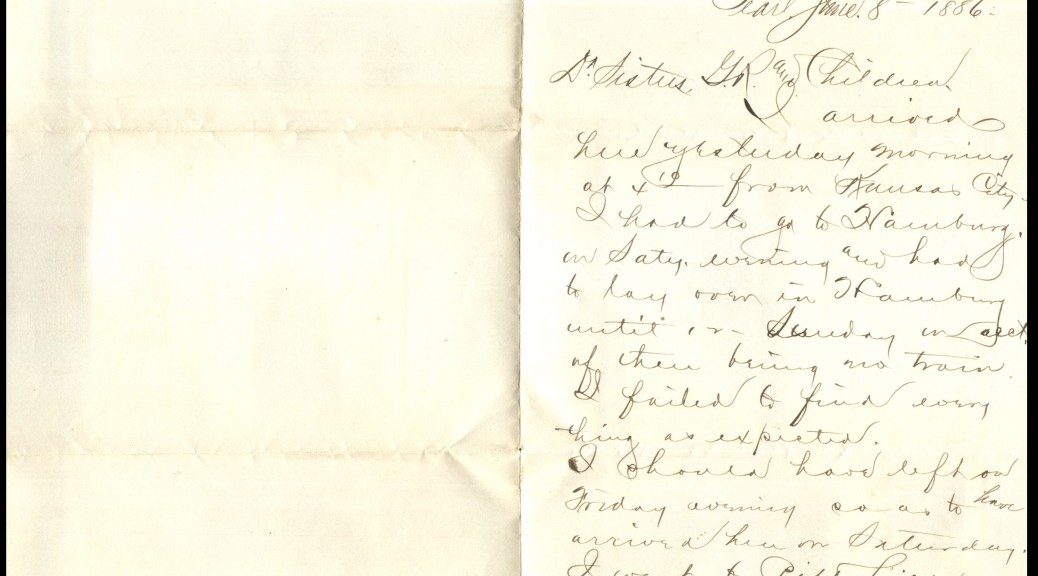 Pearl June. 8 - 1886.
Dr Sisters, G.R. and Children
I arrived
here yesterday morning
at from Kansas City.
I had to go to Hamburg.
on Saty. evening and had
to lay over in Hamburg
until Sunday on acct.
of there being no train.
I failed to find every
thing as expected.
I should have left on
Friday evening so as to have
arrived here on Saturday.
I went to